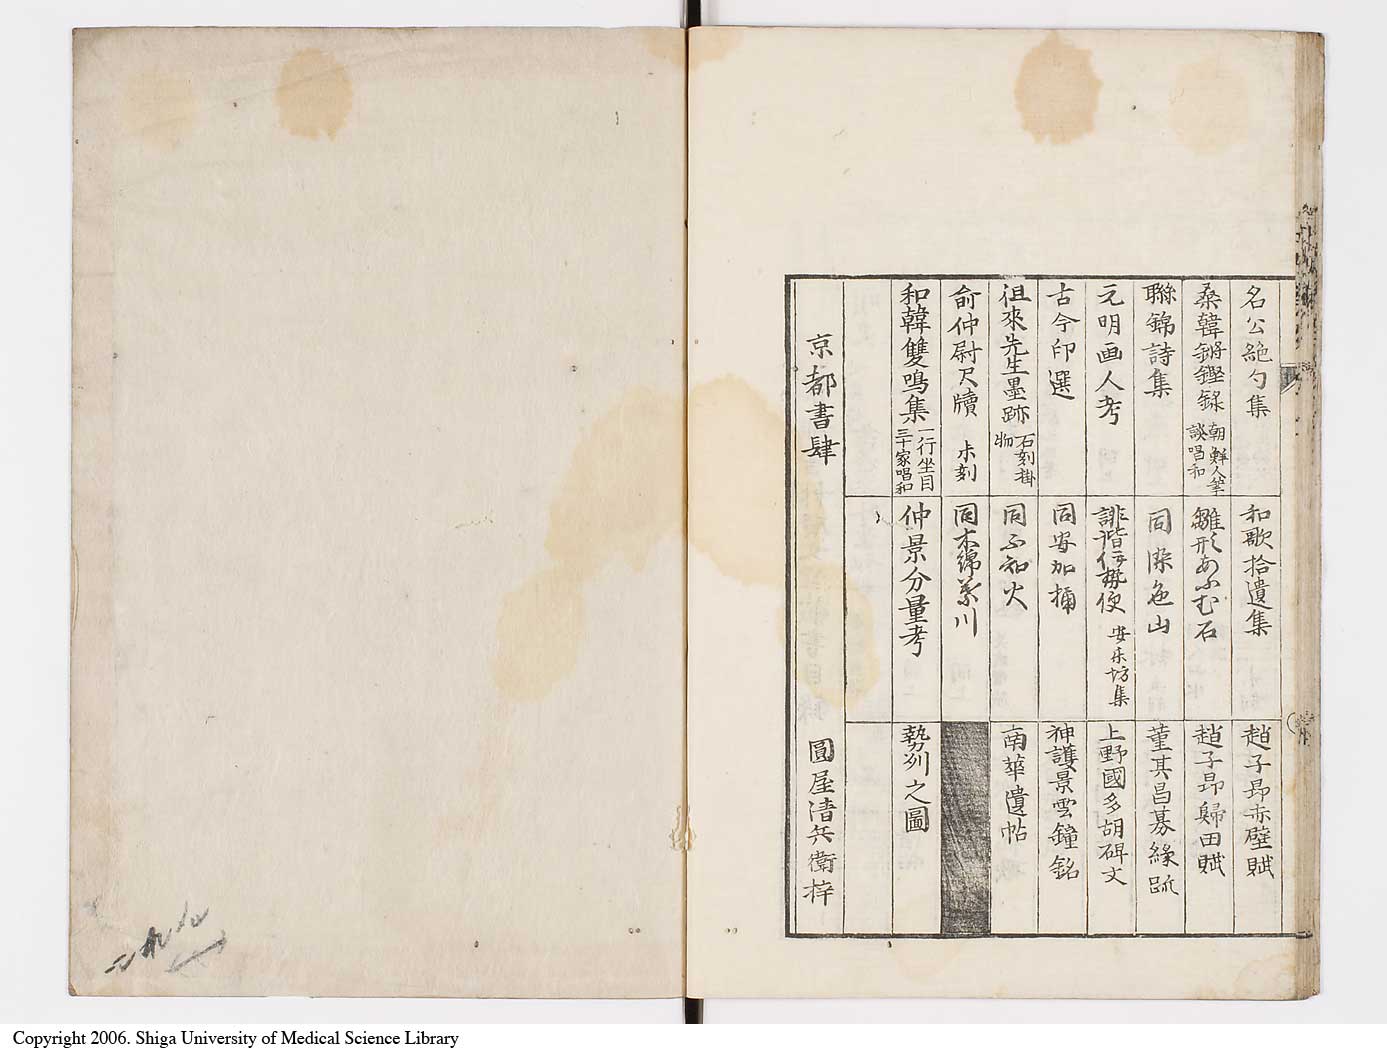 名公絶句集
桑韓鏘鏗録 朝鮮人筆談唱和
聯錦詩集
元明画人考
古今印選
徂來先生墨跡 石刻掛物
俞仲尉尺牘 木刻
和韓雙鳴集 一行坐目三十家唱和
和歌拾遺集
雛形あふむ石
同 染色山
誹諧伊勢便 安樂坊集
同 安加桶
同 不知火
同 木綿葉川
仲景分量考
趙子昂赤壁賦
趙子昂歸田賦
董其昌募縁疏
上野國多胡碑文
神護景雲鐘銘
南華遺帖
勢列之圖
京都書肆 圓屋清兵衛梓
Copyright 2006. Shiga University of Medical Science Library